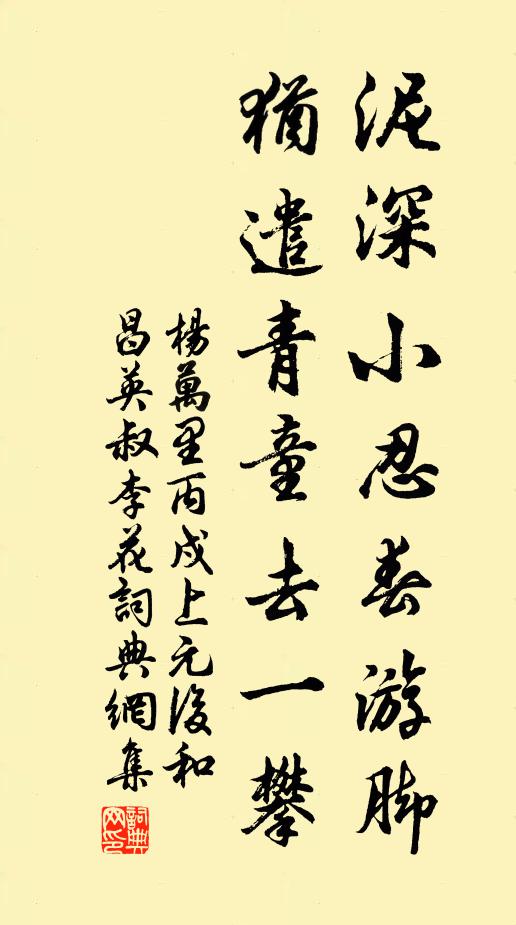 泥深小忍春游脚
猶遣青童去一攀
楊萬里丙戌上元後和
昌英叔李花詞典網集
詞典網印